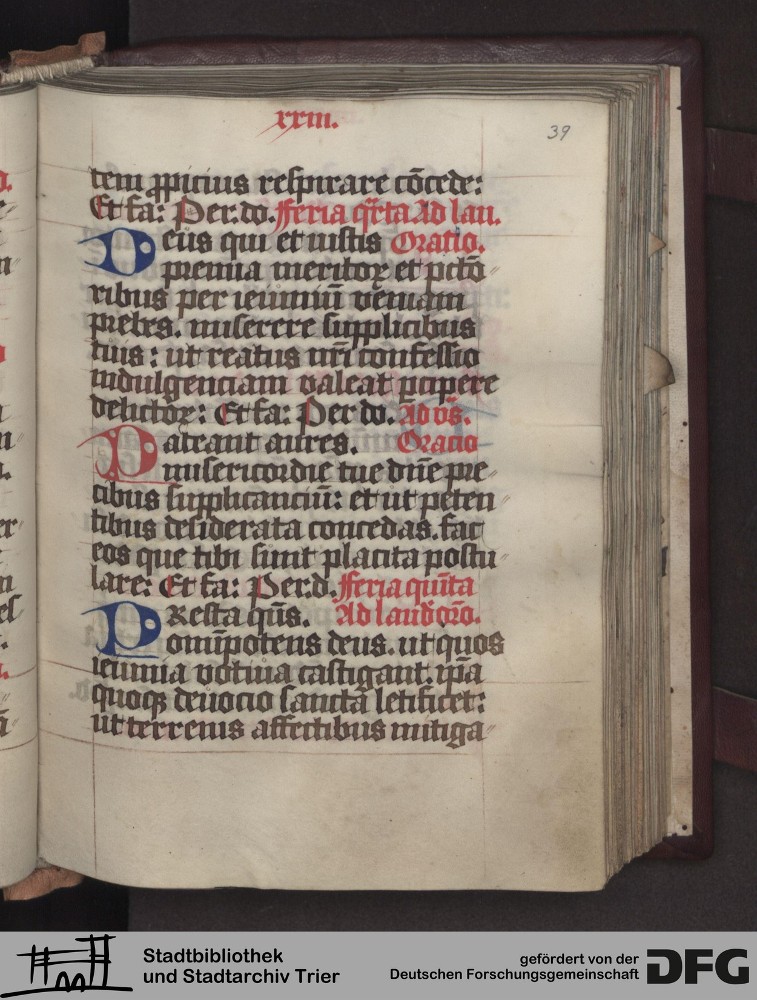 xxiii.
39
tem ꝓpicius respirare cōcede:
Et fa: Per.do. Feria q̄rta Ad lau.
Deus qui et iustis Oratio.
premia meritoꝝ et pctō
ribus per ieiuniū veniam
prebes. miserere supplicibus
tuis: ut reatus nr̄i confessio
indulgenciam valeat ꝑcipere
delictoꝝ: Et fa: Per do. Ad vs̄.
Pateant aures. Oratio
misericordie tue dn̄e pre
cibus supplicanciū: et ut peten
tibus desiderata concedas. fac
eos que tibi sunt placita postu
lare: Et fa: Per.d. Feria quīta
PResta qs̄. Ad laud oro.
omīpotens deus. ut quos
ieiunia votiua castigant. ip̄a
quoqꝫ deuocio sancta letificet:
ut terrenis affectibus mitiga
Stadtbibliothek
und Stadtarchiv Trier
gefördert von der
Deutschen Forschungsgemeinschaft
DFG